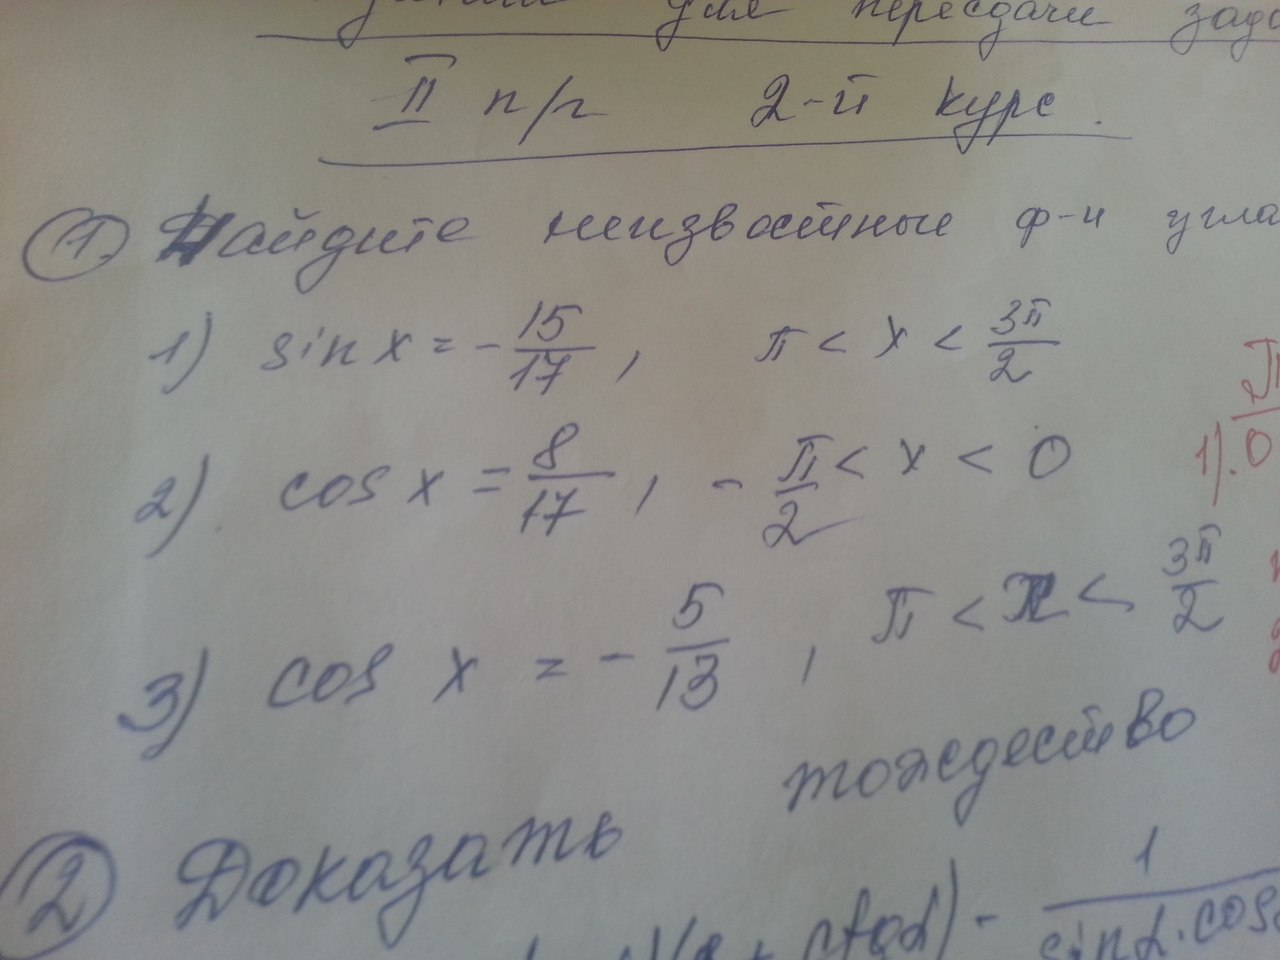 для пересдачи
II п/г 2-й курс.
1. Найдите неизвестные ф-и угла
1) sin x = - 15/17, π < x < 3π/2
2) cos x = 8/17, - π/2 < x < 0
3) cos x = - 5/13, π < x < 3π/2
2 Доказать тождество
+ ctgα) - 1/sinα·cos
1). π/0